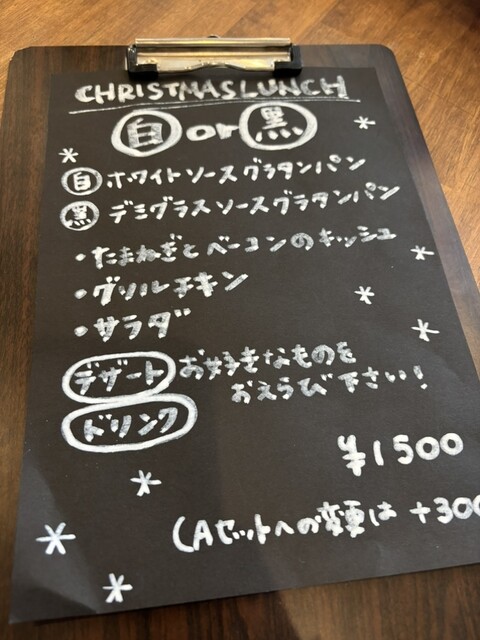 CHRISTMAS LUNCH
白 or 黒
白 ホワイトソースグラタンパン
黒 デミグラスソースグラタンパン
・たまねぎとベーコンのキッシュ
・グリルチキン
・サラダ
デザート お好きなものを
おえらび下さい!
ドリンク
¥1500
(Aセットへの変更は +300